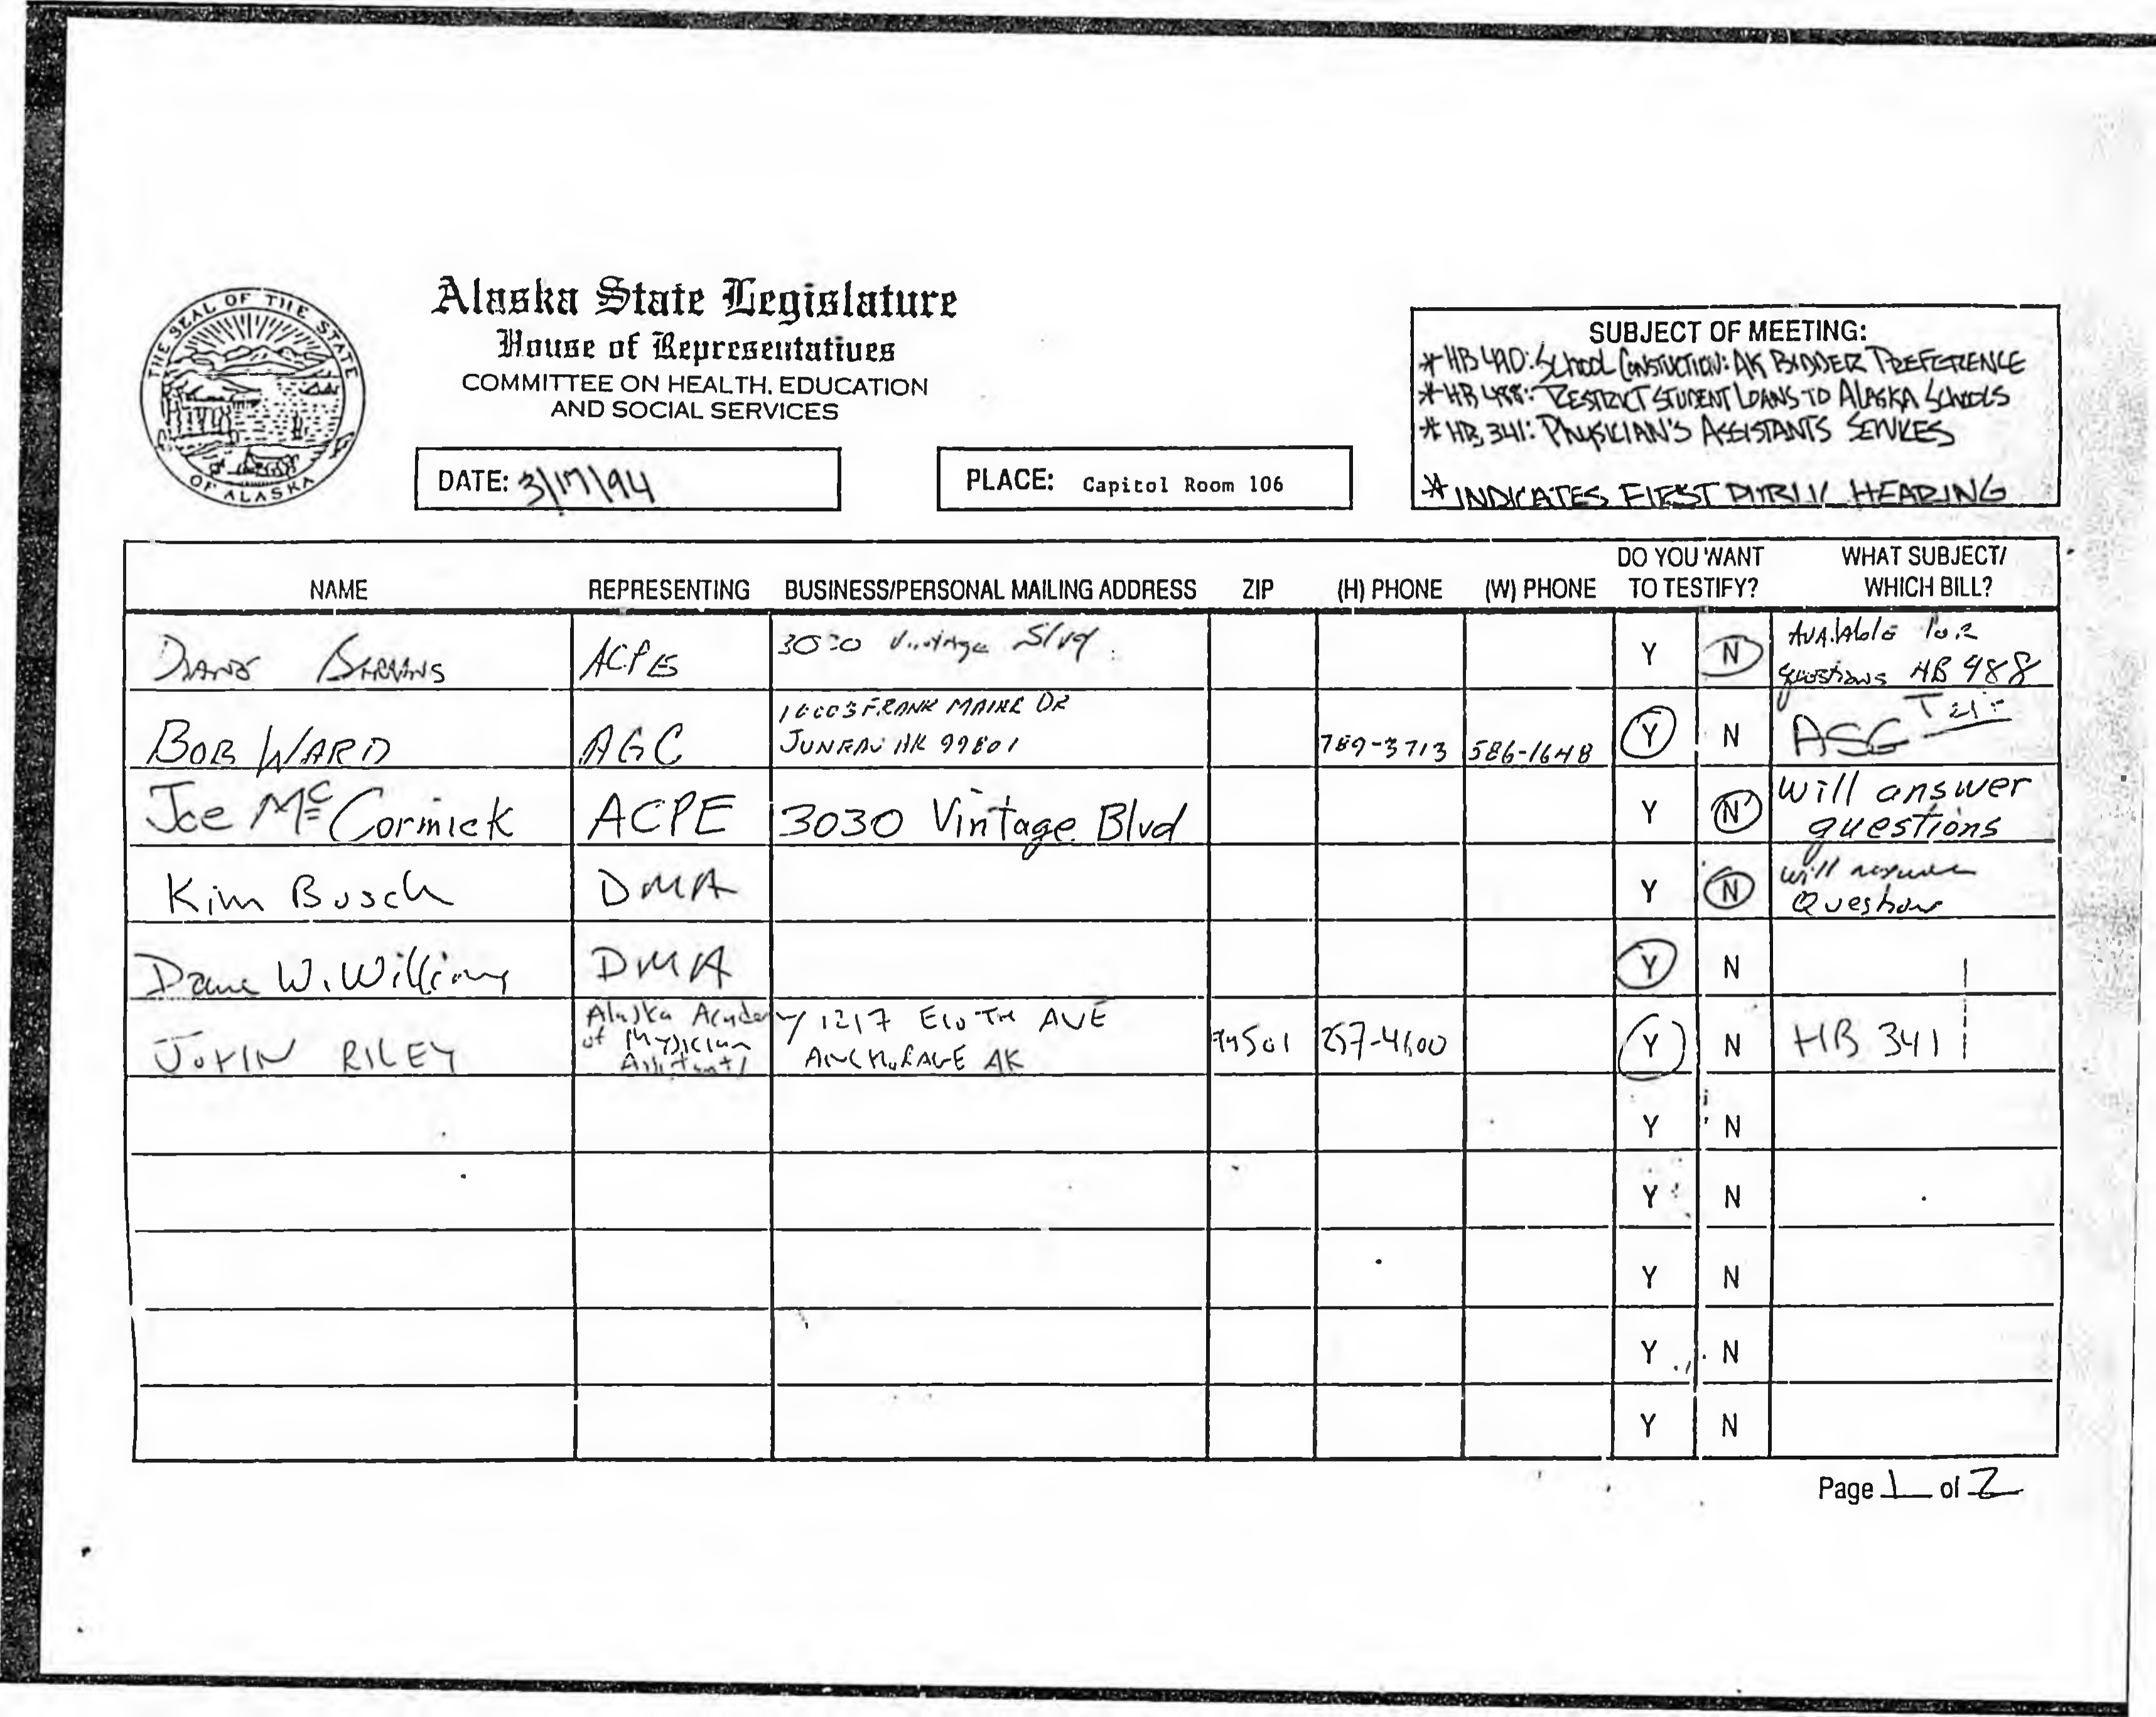 THE SEAL OF THE STATE OF ALASKA
Alaska State Legislature
House of Representatives
COMMITTEE ON HEALTH, EDUCATION
AND SOCIAL SERVICES
DATE: 3/17/94
PLACE: Capitol Room 106
SUBJECT OF MEETING:
* HB 490: SCHOOL CONSTUCTION: AK BIDDER PREFERENCE
* HB 488: RESTRICT STUDENT LOANS TO ALASKA SCHOOLS
* HB 341: PHYSICIAN'S ASSISTANTS SERVICES
* INDICATES FIRST PUBLIC HEARING
NAME REPRESENTING BUSINESS/PERSONAL MAILING ADDRESS ZIP (H) PHONE (W) PHONE DO YOU WANT TO TESTIFY? WHAT SUBJECT/ WHICH BILL?
ACPE 3030 Vintage Blvd. Y N Available for
questions HB 488
BOB WARD AGC FRANK MAIER DR
JUNEAU AK 99801 789-3713 586-1648 Y N
Joe McCormick ACPE 3030 Vintage Blvd Y N Will answer
questions
Kim Busch DMA Y N will answer
Questions
W. Williams DMA Y N
JOHN RILEY Alaska Academy
of Physician
Assistants 1217 E 10TH AVE
ANCHORAGE AK 99501 257-4600 Y N HB 341
Y N
Y N
Y N
Y N
Y N
Page 1 of 2